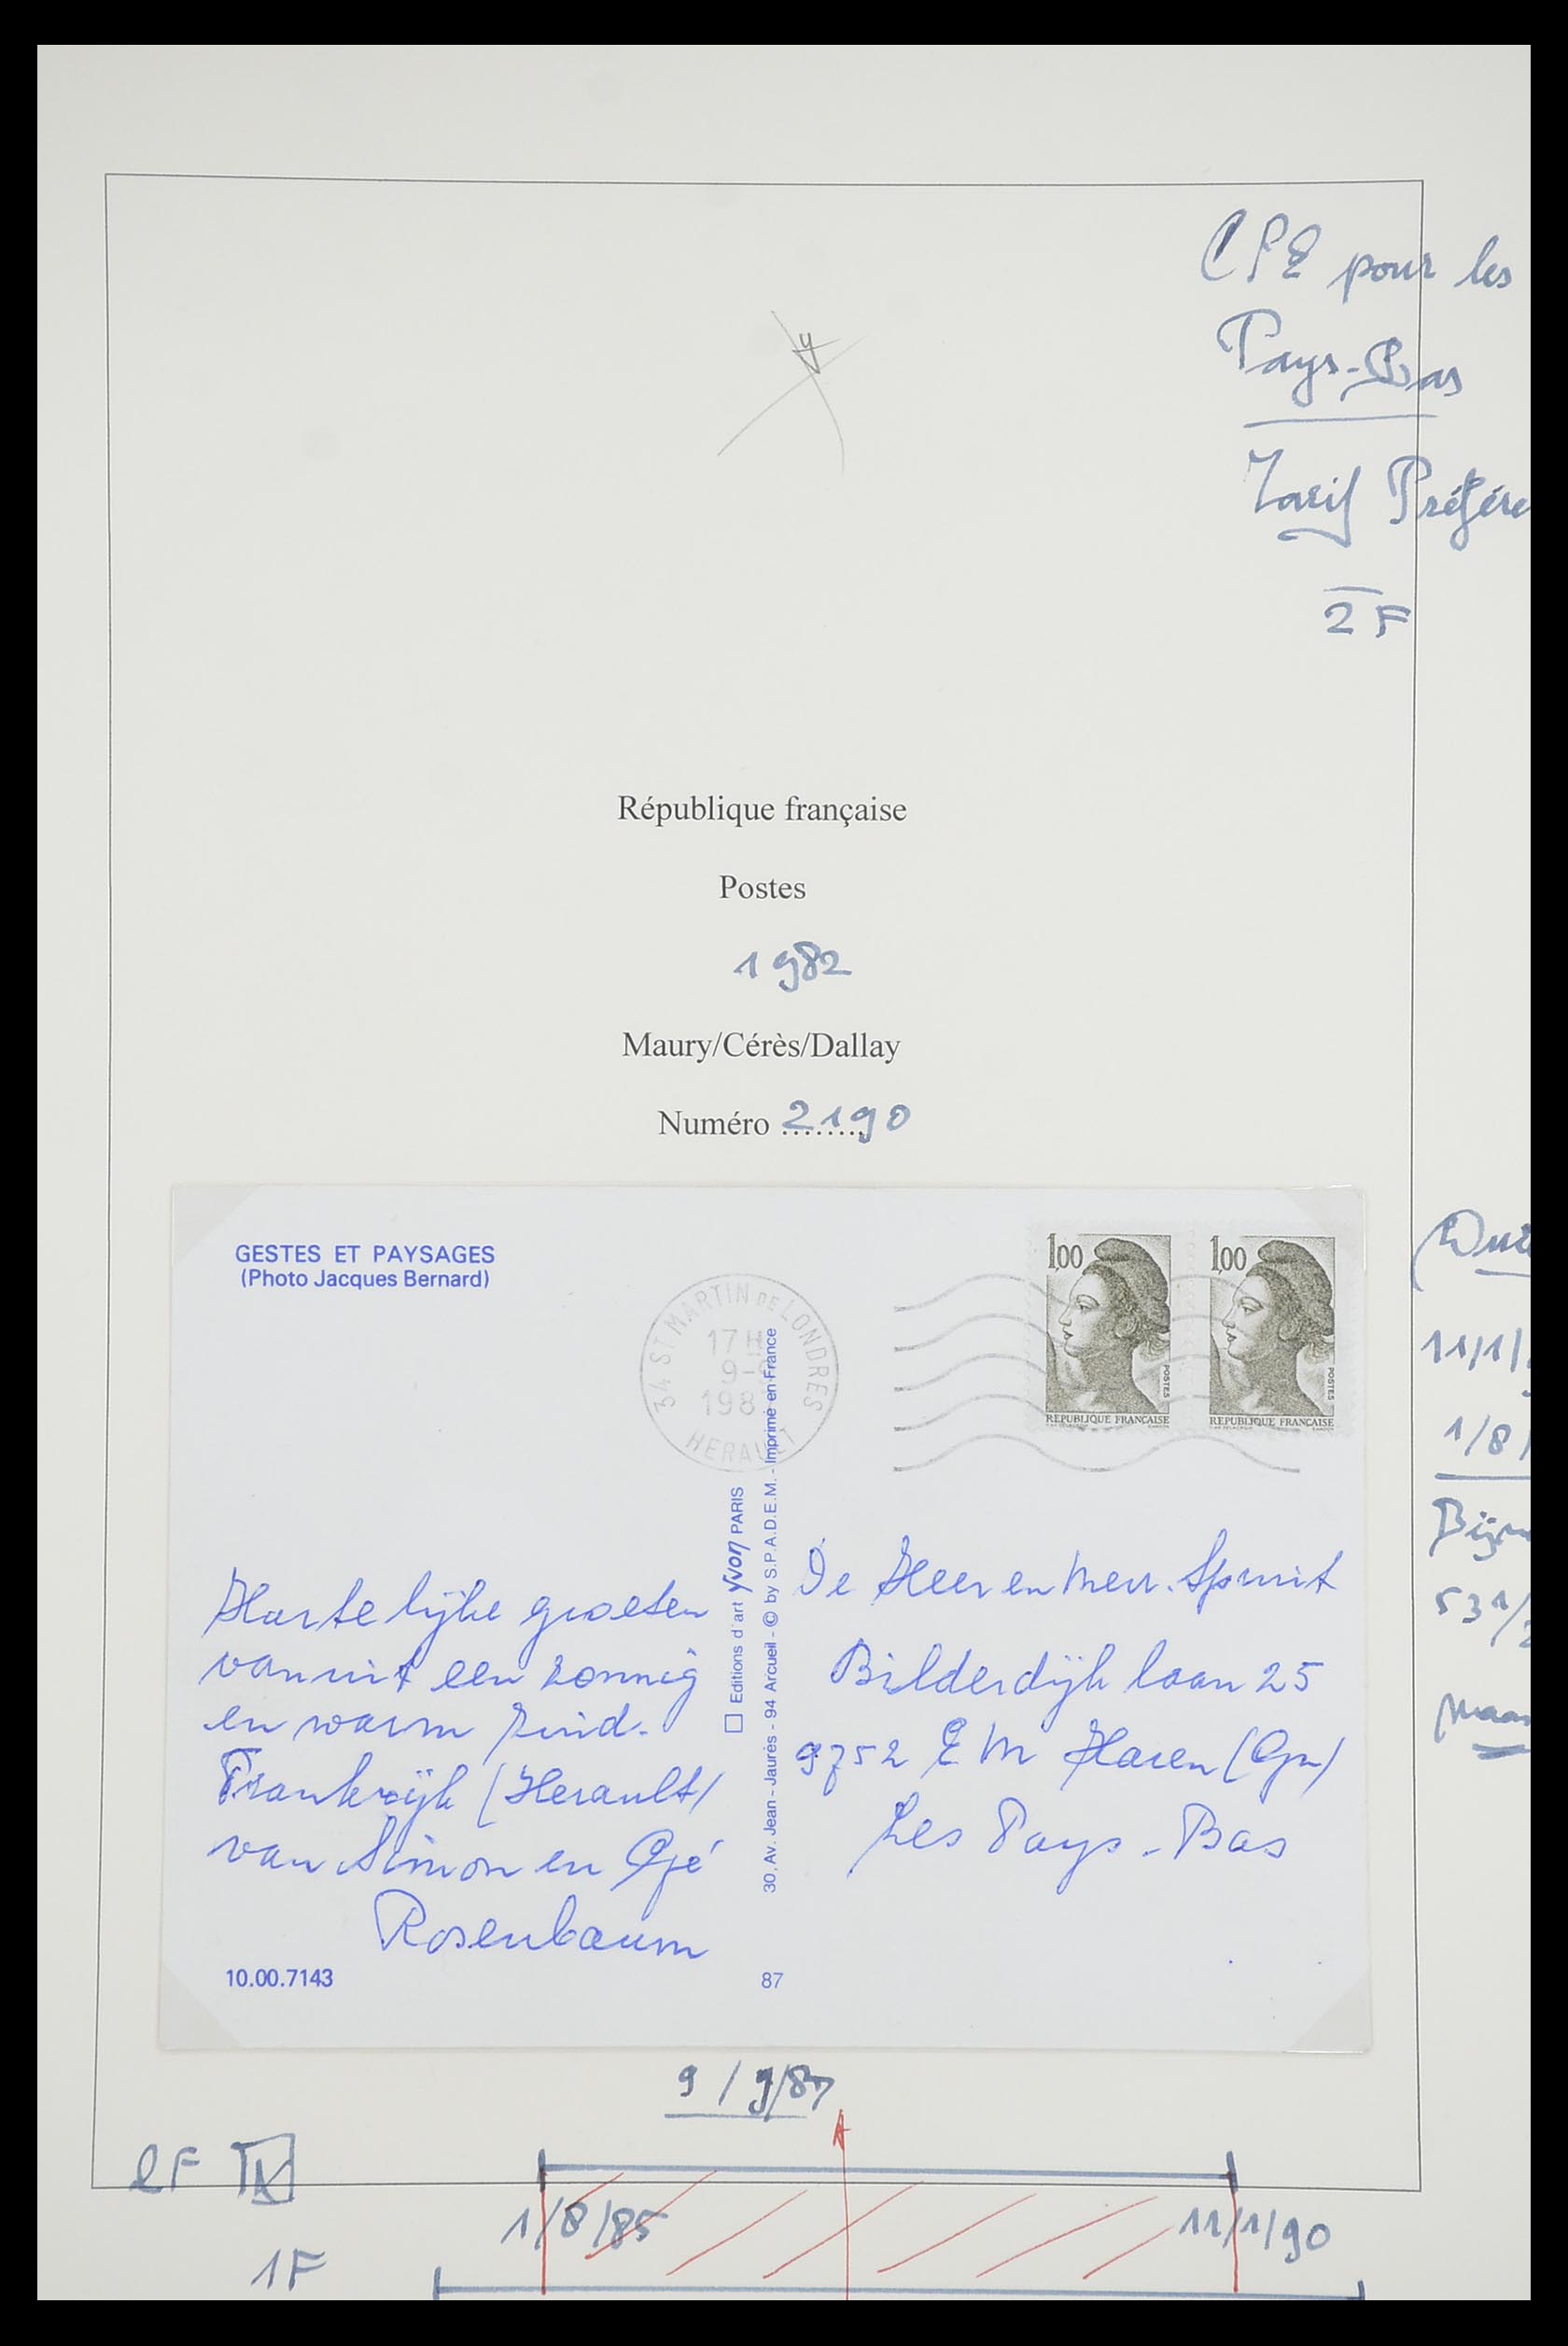 CPE pour les
Pays-Bas
Tarif Préfére
2 F
République française
Postes
1982
Maury/Cérès/Dallay
Numéro ........ 2190
GESTES ET PAYSAGES
(Photo Jacques Bernard)
34 ST MARTIN DE LONDRES
17 H
9-
198
HERAULT
1,00
POSTES
REPUBLIQUE FRANÇAISE
1,00
POSTES
REPUBLIQUE FRANÇAISE
Hartelijke groeten
vanuit een zonnig
en warm Zuid-
Frankrijk (Herault)
van Simon en Gjé
Rosenbaum
10.00.7143
Editions d'art Yvon PARIS
30, Av. Jean-Jaurès - 94 Arcueil - © by S.P.A.D.E.M. - Imprimé en France
87
De Heer en Mevr. Spruit
Bilderdijk laan 25
9752 EM Haren (Gn)
Les Pays-Bas
11/1/
1/8/
531/
9/9/87
1/8/85
11/1/90
1F